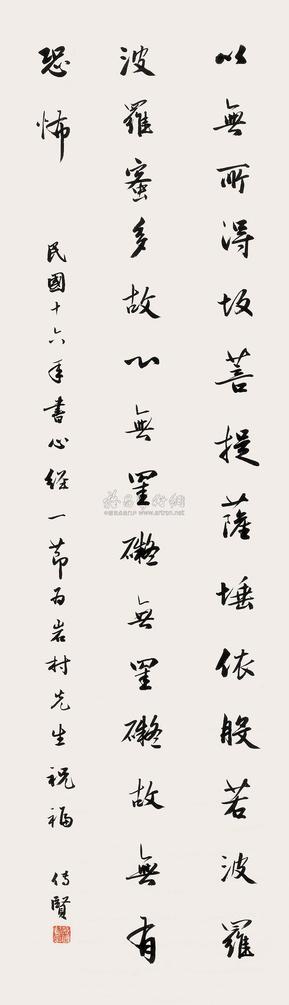 以無所得故菩提薩埵依般若波羅
波羅蜜多故心無罣礙無罣礙故無有
恐怖
民國十六年書心經一節為岩村先生祝福
傳賢